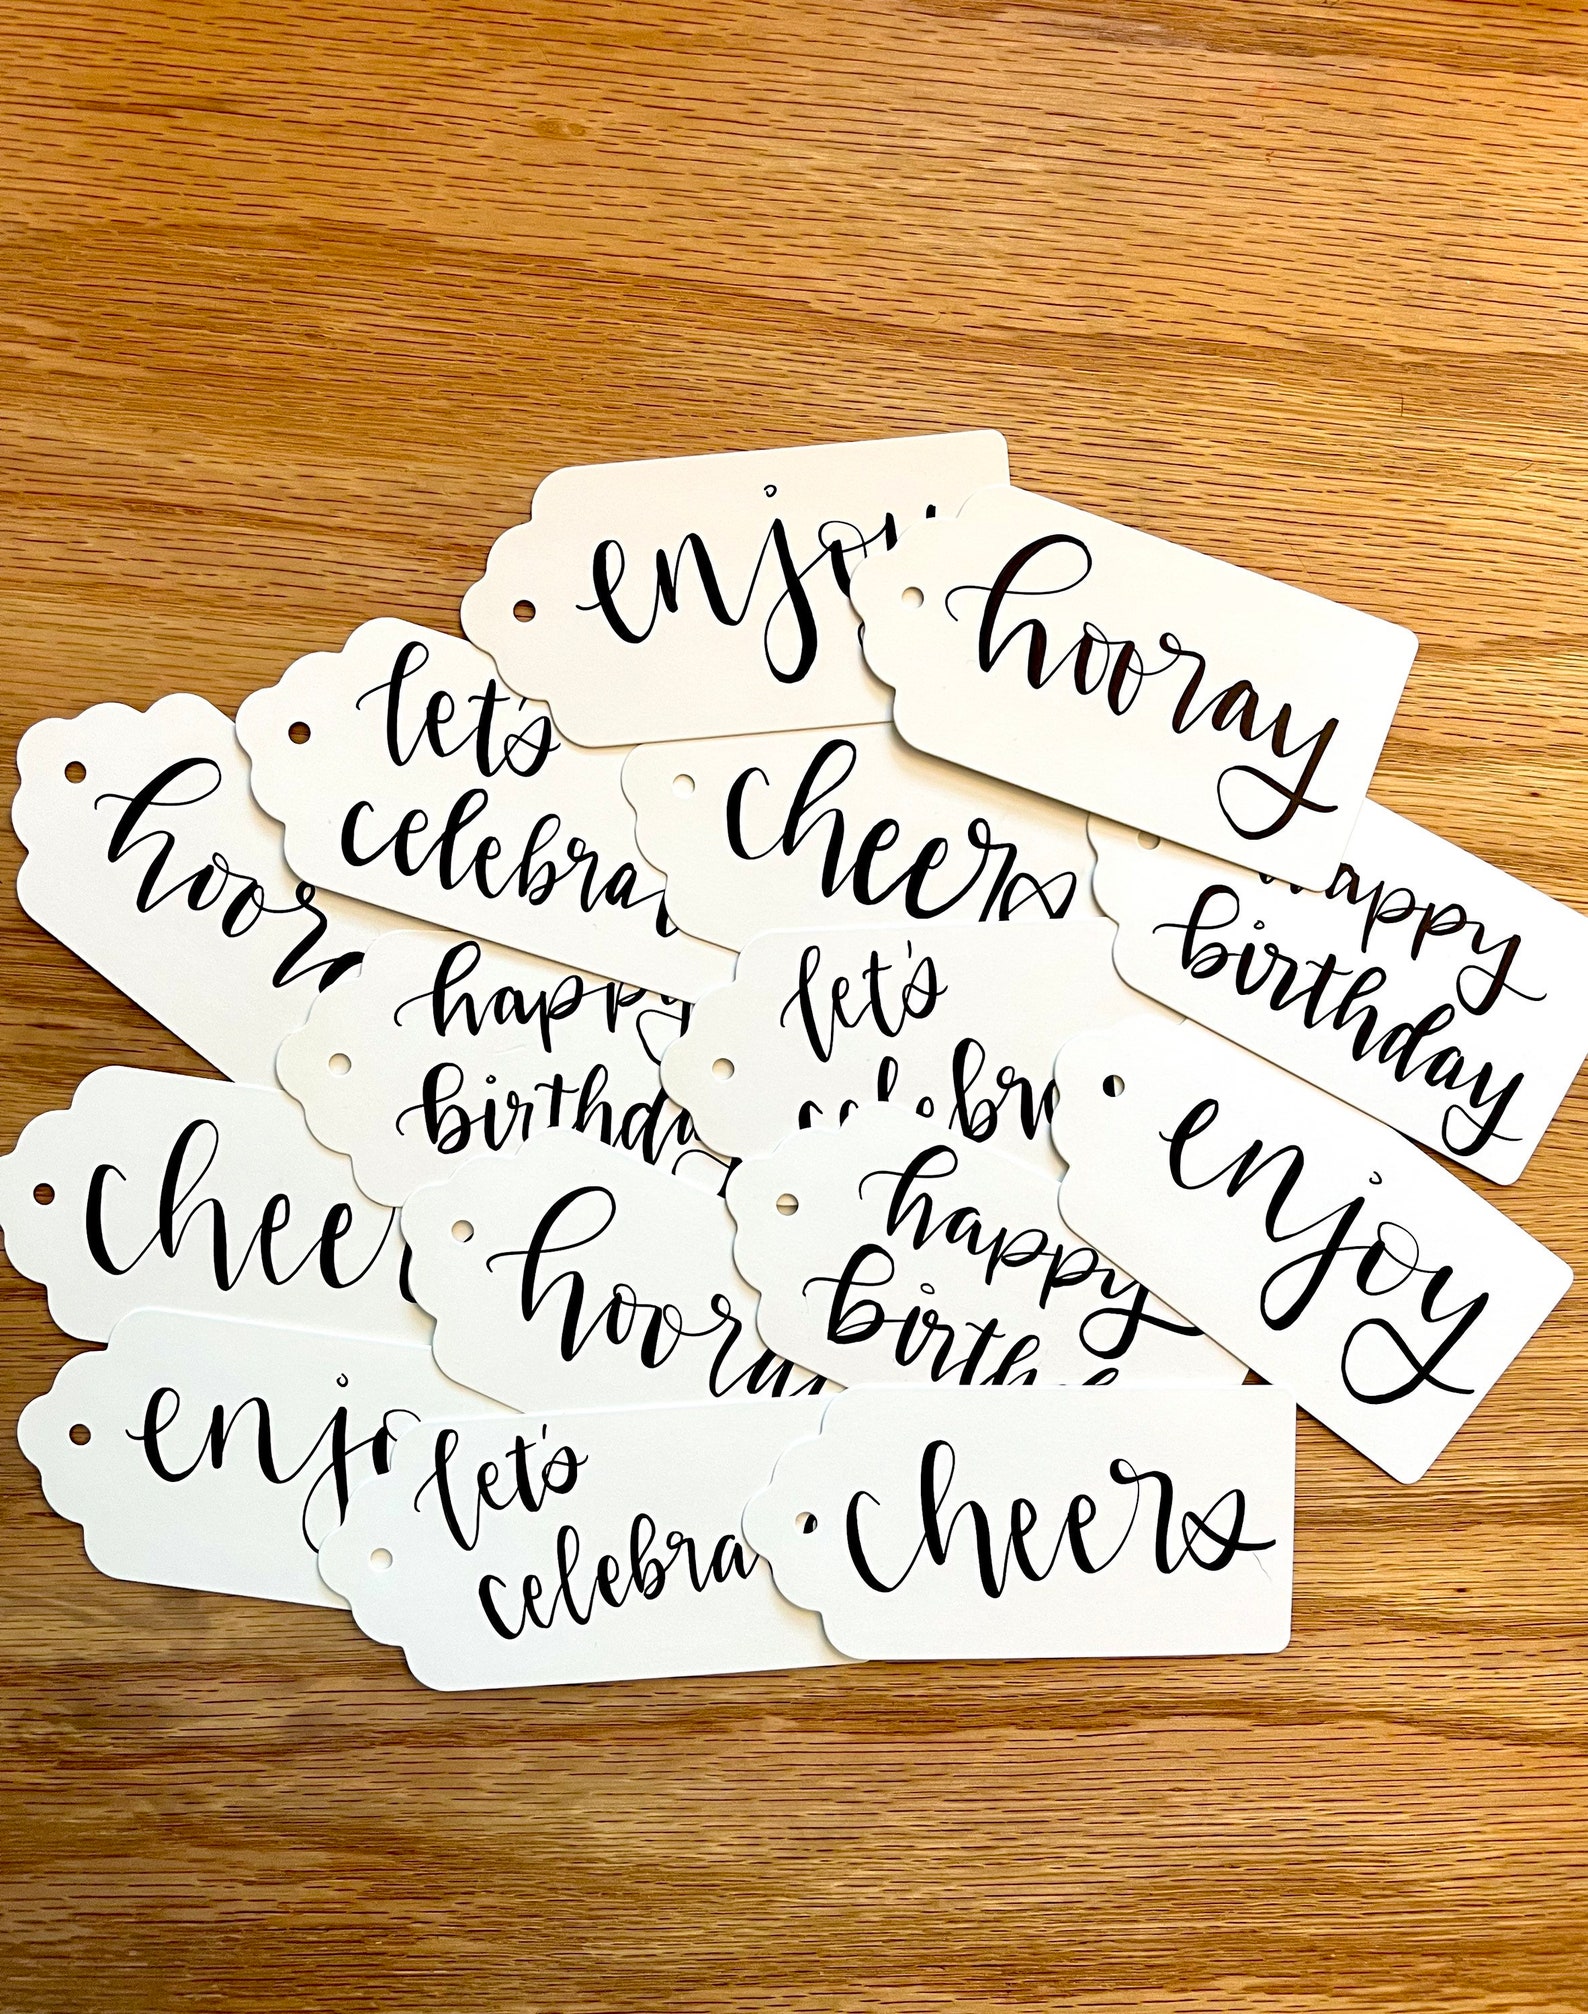 enjoy
hooray
let's
celebra
hoora
cheers
happy
birthday
happy
birthd
let's
celebr
enjoy
cheer
hooray
happy
birth
enjo
let's
celebra
cheers